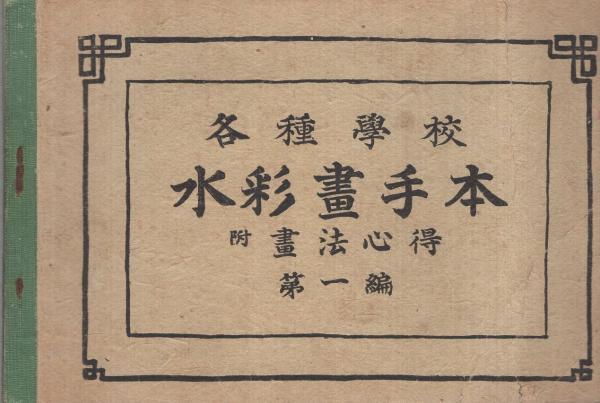 各種學校
水彩畫手本
附畫法心得
第一編